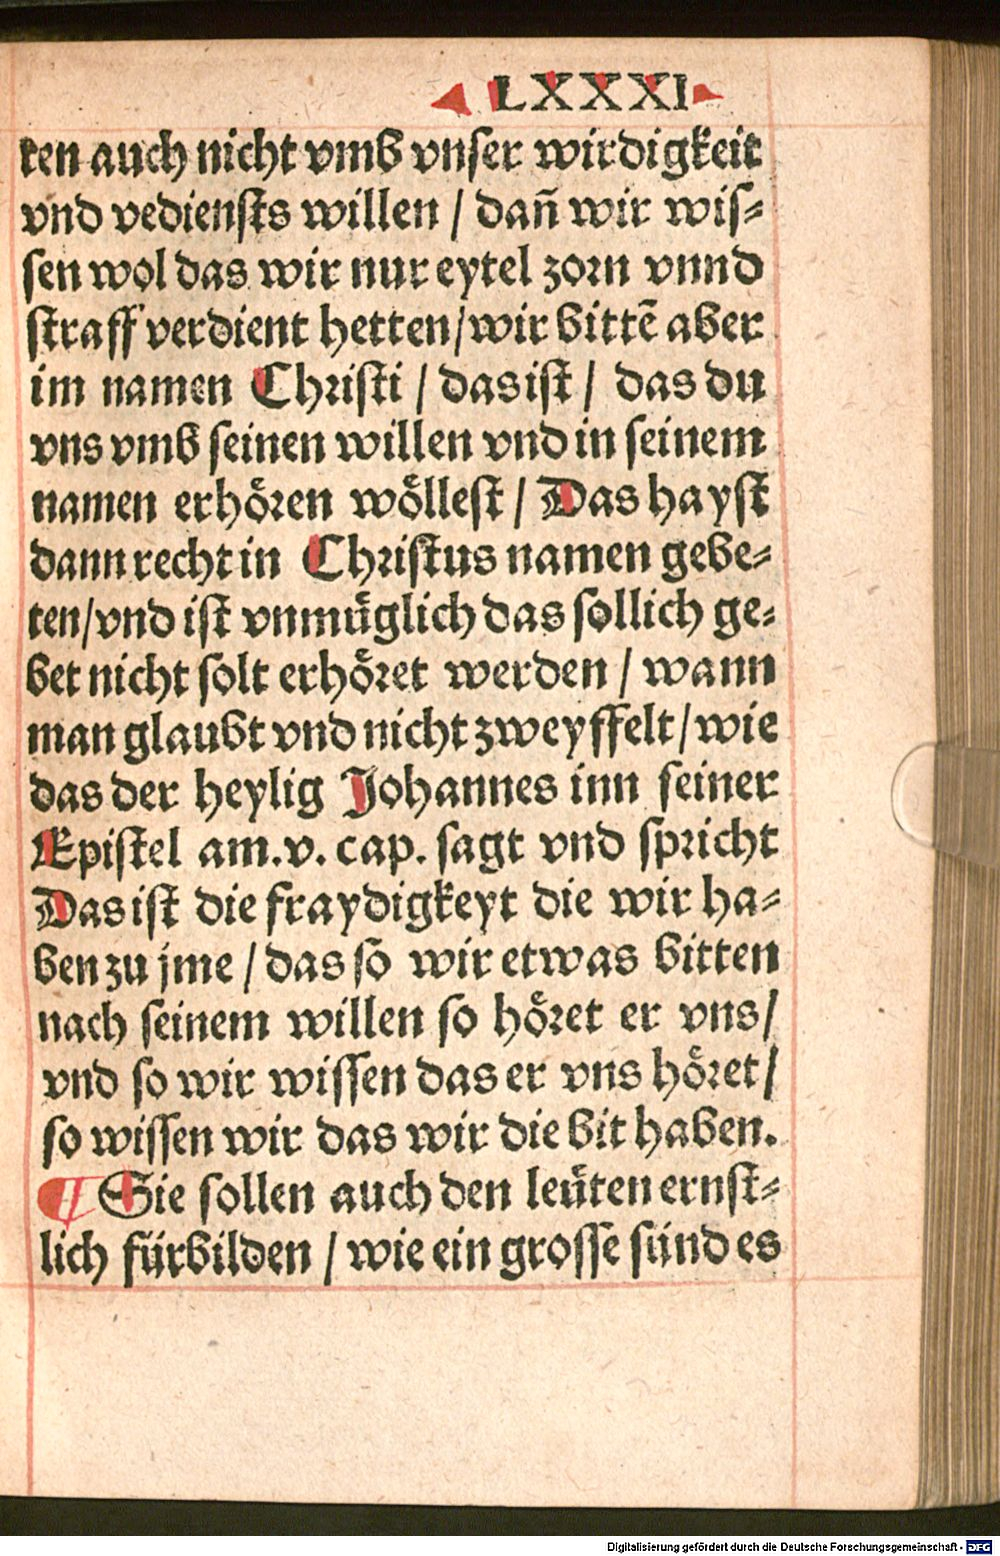 LXXXI
ten auch nicht vmb vnser wirdigkeit
vnd vediensts willen / dañ wir wis⸗
sen wol das wir nur eytel zorn vnnd
straff verdient hetten/wir bittē aber
im namen Christi / das ist / das du
vns vmb seinen willen vnd in seinem
namen erhören wöllest / Das hayst
dann recht in Christus namen gebe⸗
ten/vnd ist vnmüglich das sollich ge⸗
bet nicht solt erhöret werden / wann
man glaubt vnd nicht zweyffelt/wie
das der heylig Johannes inn seiner
Epistel am.v. cap. sagt vnd spricht
Das ist die fraydigkeyt die wir ha⸗
ben zu jme / das so wir etwas bitten
nach seinem willen so höret er vns/
vnd so wir wissen das er vns höret/
so wissen wir das wir die bit haben.
¶ Sie sollen auch den leüten ernst⸗
lich fürbilden / wie ein grosse sünd es
Digitalisierung gefördert durch die Deutsche Forschungsgemeinschaft - DFG